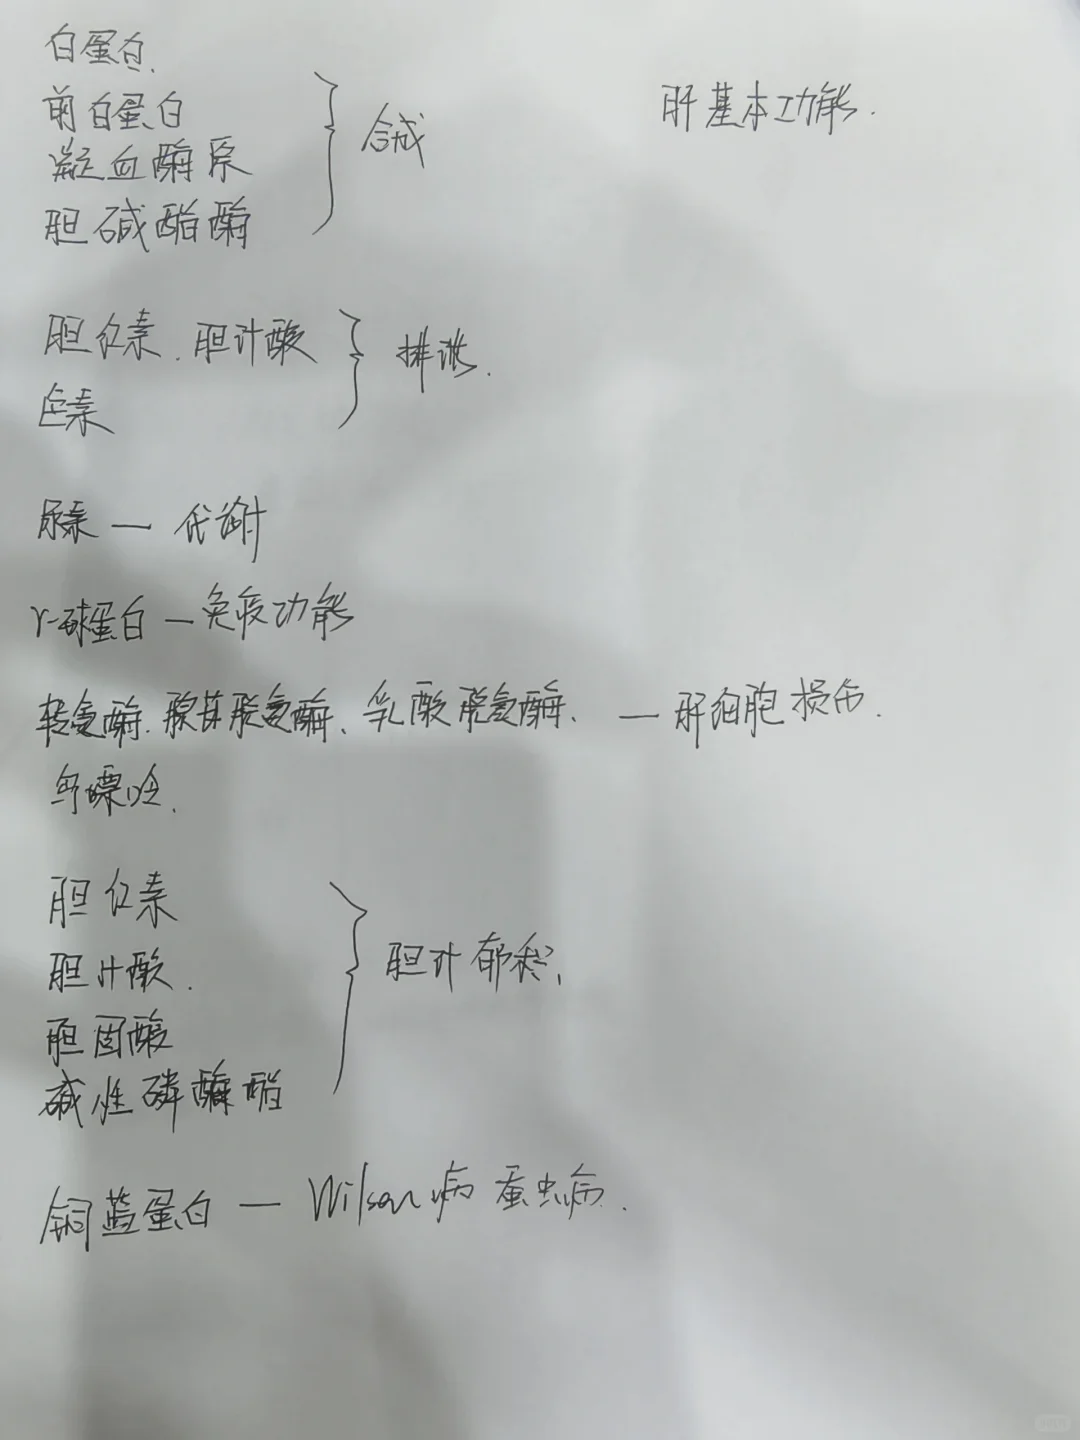 肝基本功能.
白蛋白.
前白蛋白
凝血酶原
胆碱酯酶
合成
胆红素.胆汁酸
色素
排泄.
尿素 — 代谢
γ-球蛋白 — 免疫功能
转氨酶.腺苷脱氨酶、乳酸脱氨酶、 — 肝细胞损伤.
鸟嘌呤.
胆红素
胆汁酸.
胆固酸
碱性磷酶酯
胆汁郁积、
铜蓝蛋白 — Wilson病 蚕虫病.